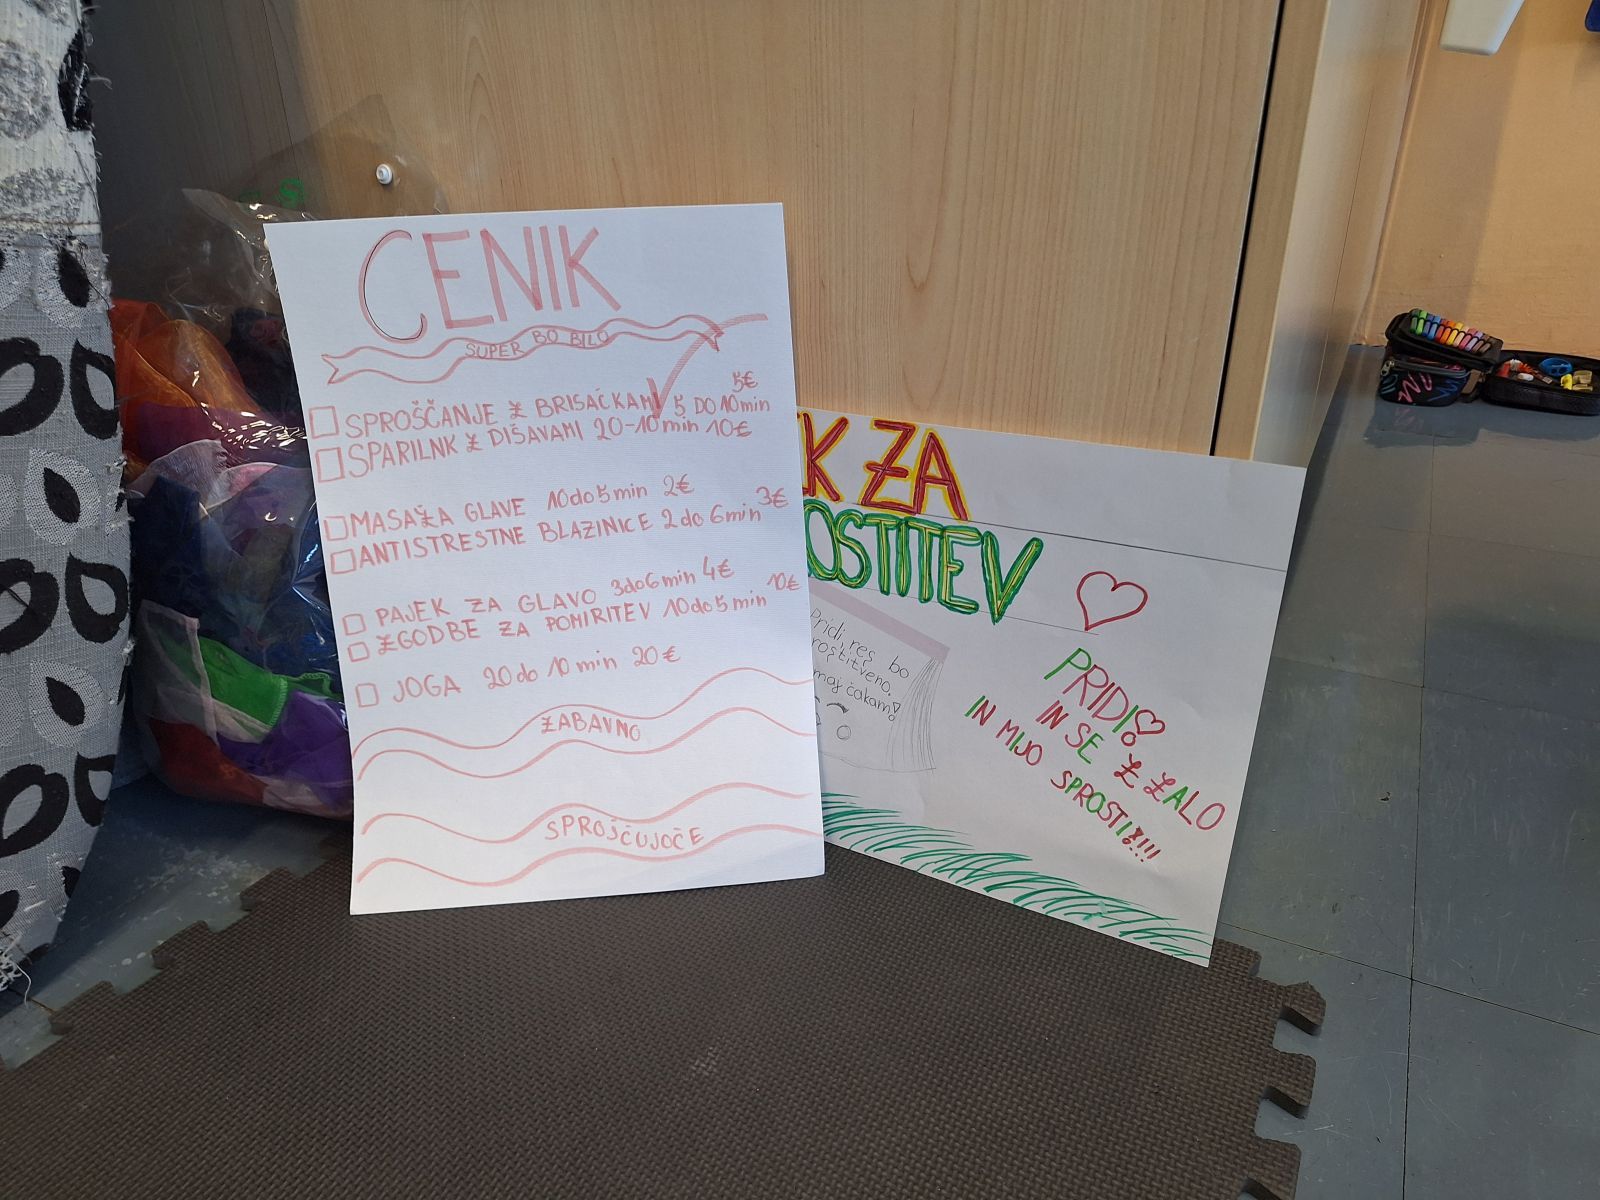 CENIK
SUPER BO BILO
SPROŠČANJE Z BRISAČKAMI 5 DO 10 min 5€
SPARILNK Z DIŠAVAMI 20-10 min 10€
MASAŽA GLAVE 10 do 5 min 2€
ANTISTRESTNE BLAZINICE 2 do 6 min 3€
PAJEK ZA GLAVO 3 do 6 min 4€
ZGODBE ZA POMIRITEV 10 do 5 min 10€
JOGA 20 do 10 min 20€
ZABAVNO
SPROŠČUJOČE
K ZA
OSTITEV
Pridi, res bo
rostitveno.
maj čakam!
PRIDI!
IN SE Z ZALO
IN MIJO SPROSTI!!!!